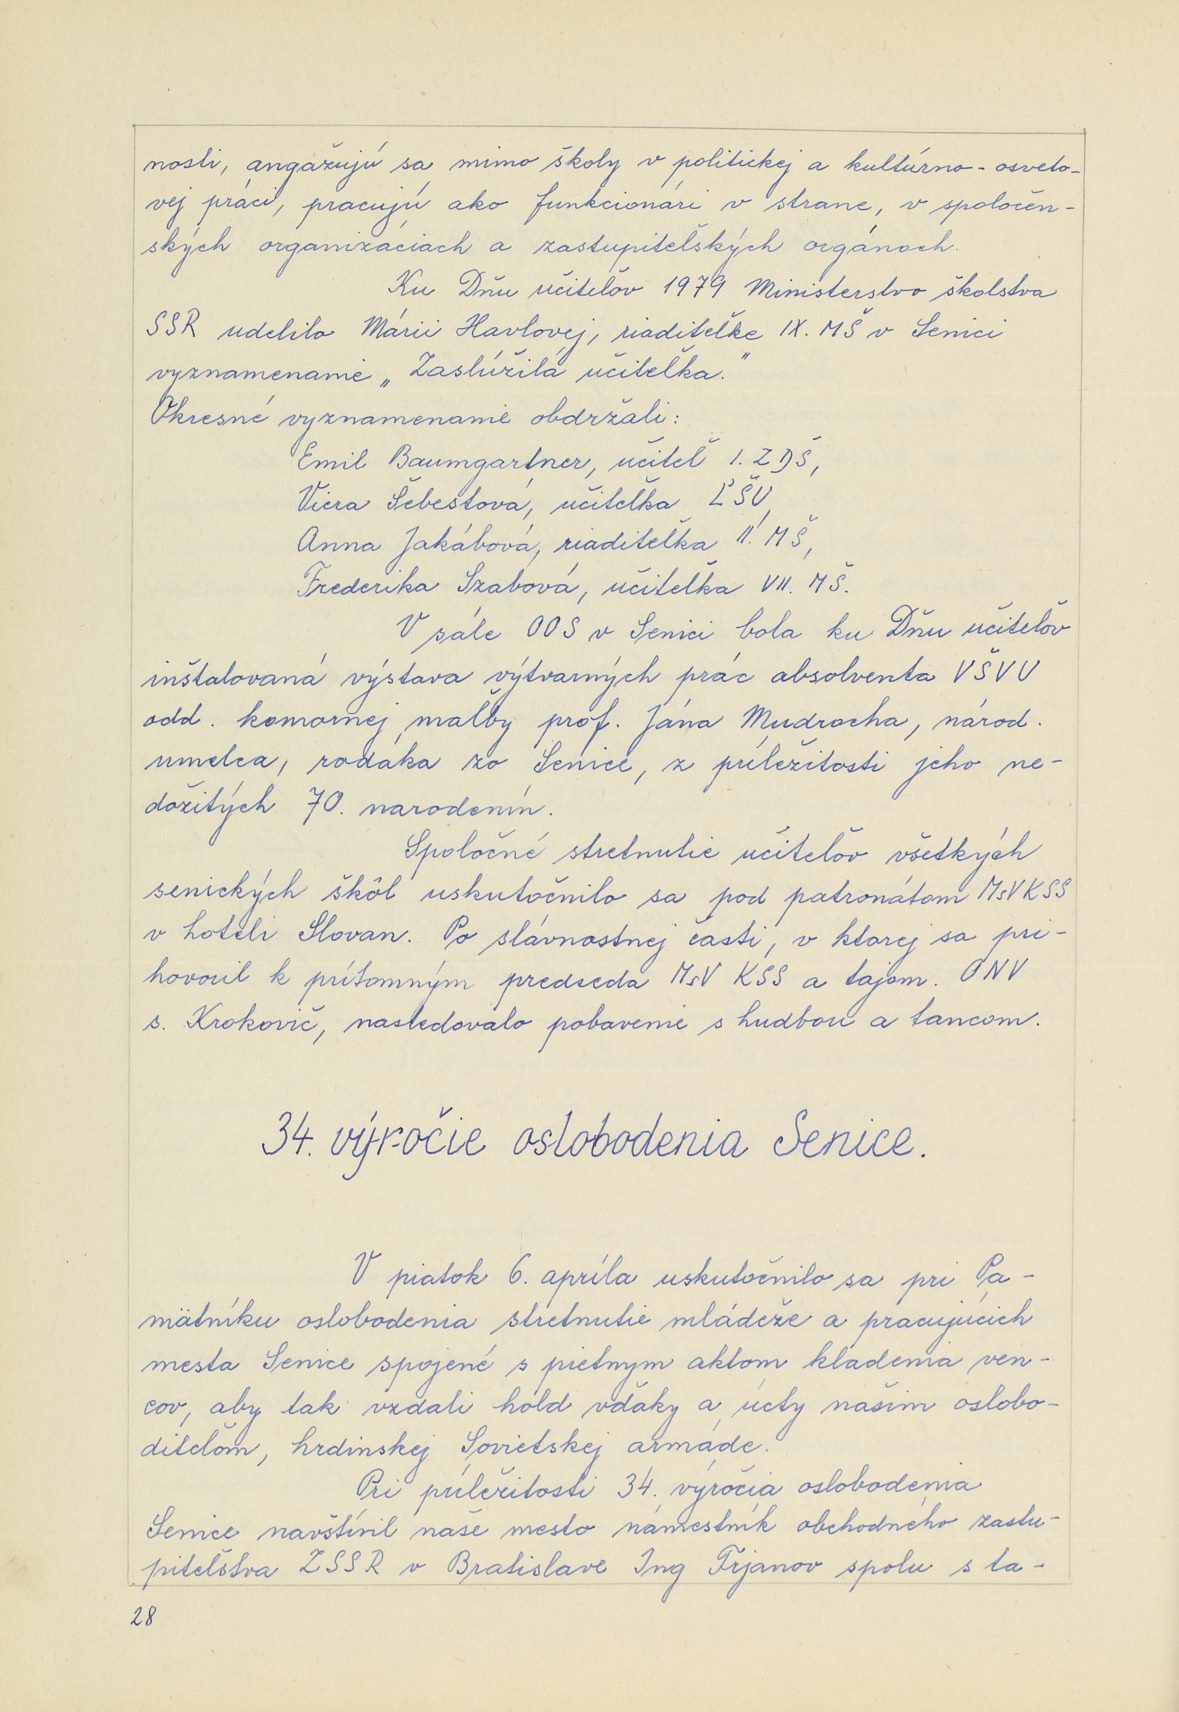 nosti, angažujú sa mimo školy v politickej a kultúrno-osveto-
vej práci, pracujú ako funkcionári v strane, v spoločen-
ských organizáciach a zastupiteľských orgánoch.
Ku Dňu učiteľov 1979 Ministerstvo školstva
SSR udelilo Márii Havlovej, riaditeľke IX. MŠ v Senici
vyznamenanie „Zaslúžilá učiteľka."
Okresné vyznamenanie obdržali:
Emil Baumgartner, učiteľ I. ZDŠ,
Viera Šebestová, učiteľka ĽŠU,
Anna Jakábová, riaditeľka II. MŠ,
Frederika Szabová, učiteľka VII. MŠ.
V sále OOS v Senici bola ku Dňu učiteľov
inštalovaná výstava výtvarných prác absolventa VŠVU
odd. komornej maľby prof. Jána Mudrocha, národ.
umelca, rodáka zo Senice, z príležitosti jeho ne-
dožitých 70. narodenín.
Spoločné stretnutie učiteľov všetkých
senických škôl uskutočnilo sa pod patronátom MsV KSS
v hoteli Slovan. Po slávnostnej časti, v ktorej sa pri-
hovoril k prítomným predseda MsV KSS a tajom. ONV
s. Krokovič, nasledovalo pobavenie s hudbou a tancom.
34. výročie oslobodenia Senice.
V piatok 6. apríla uskutočnilo sa pri Pa-
mätníku oslobodenia stretnutie mládeže a pracujúcich
mesta Senice spojené s pietnym aktom kladenia ven-
cov, aby tak vzdali hold vďaky a úcty našim oslobo-
diteľom, hrdinskej Sovietskej armáde.
Pri príležitosti 34. výročia oslobodenia
Senice navštívil naše mesto námestník obchodného zastu-
piteľstva ZSSR v Bratislave Ing Trjanov spolu s ta-
28